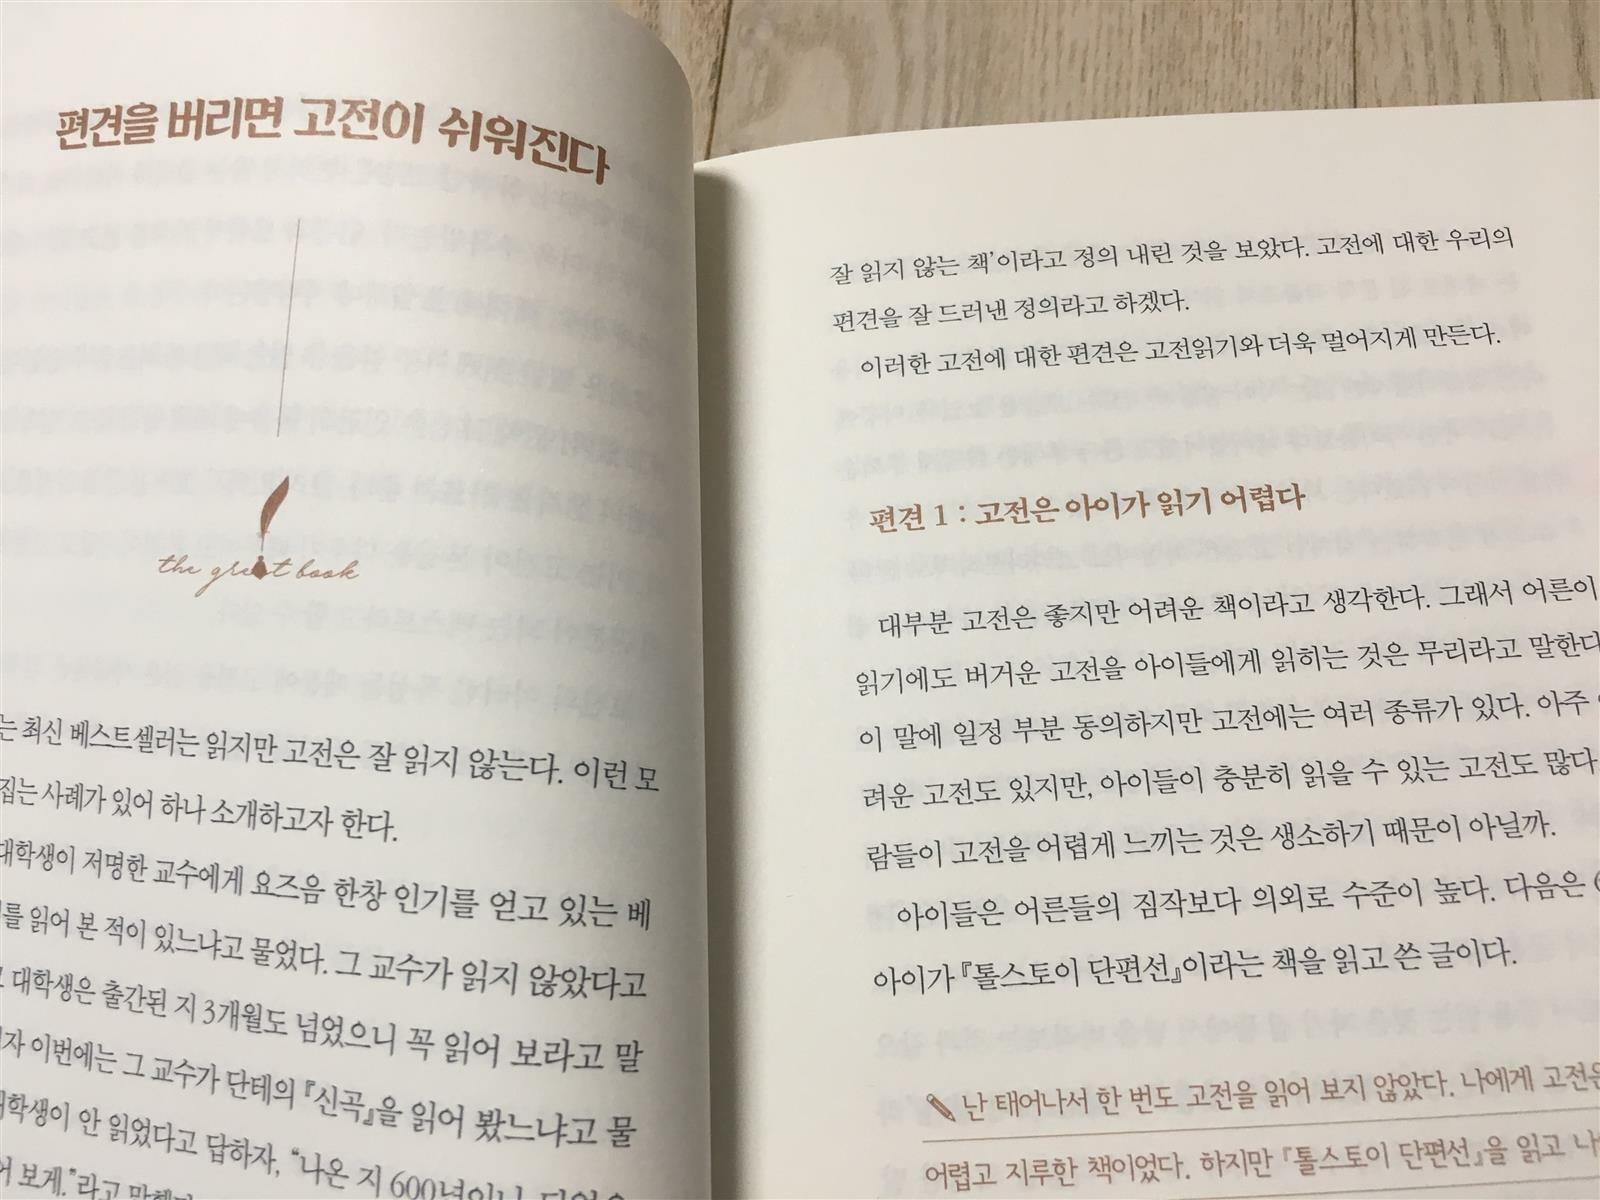 편견을 버리면 고전이 쉬워진다
the great book
는 최신 베스트셀러는 읽지만 고전은 잘 읽지 않는다. 이런 모
집는 사례가 있어 하나 소개하고자 한다.
대학생이 저명한 교수에게 요즈음 한창 인기를 얻고 있는 베
를 읽어 본 적이 있느냐고 물었다. 그 교수가 읽지 않았다고
대학생은 출간된 지 3개월도 넘었으니 꼭 읽어 보라고 말
자 이번에는 그 교수가 단테의 『신곡』을 읽어 봤느냐고 물
대학생이 안 읽었다고 답하자, “나온 지 600년이
어 보게.”라고
잘 읽지 않는 책’이라고 정의 내린 것을 보았다. 고전에 대한 우리의
편견을 잘 드러낸 정의라고 하겠다.
이러한 고전에 대한 편견은 고전읽기와 더욱 멀어지게 만든다.
편견 1 : 고전은 아이가 읽기 어렵다
대부분 고전은 좋지만 어려운 책이라고 생각한다. 그래서 어른이
읽기에도 버거운 고전을 아이들에게 읽히는 것은 무리라고 말한다
이 말에 일정 부분 동의하지만 고전에는 여러 종류가 있다. 아주
려운 고전도 있지만, 아이들이 충분히 읽을 수 있는 고전도 많다.
람들이 고전을 어렵게 느끼는 것은 생소하기 때문이 아닐까.
아이들은 어른들의 짐작보다 의외로 수준이 높다. 다음은
아이가 『톨스토이 단편선』이라는 책을 읽고 쓴 글이다.
난 태어나서 한 번도 고전을 읽어 보지 않았다. 나에게 고전은
어렵고 지루한 책이었다. 하지만 『톨스토이 단편선』을 읽고